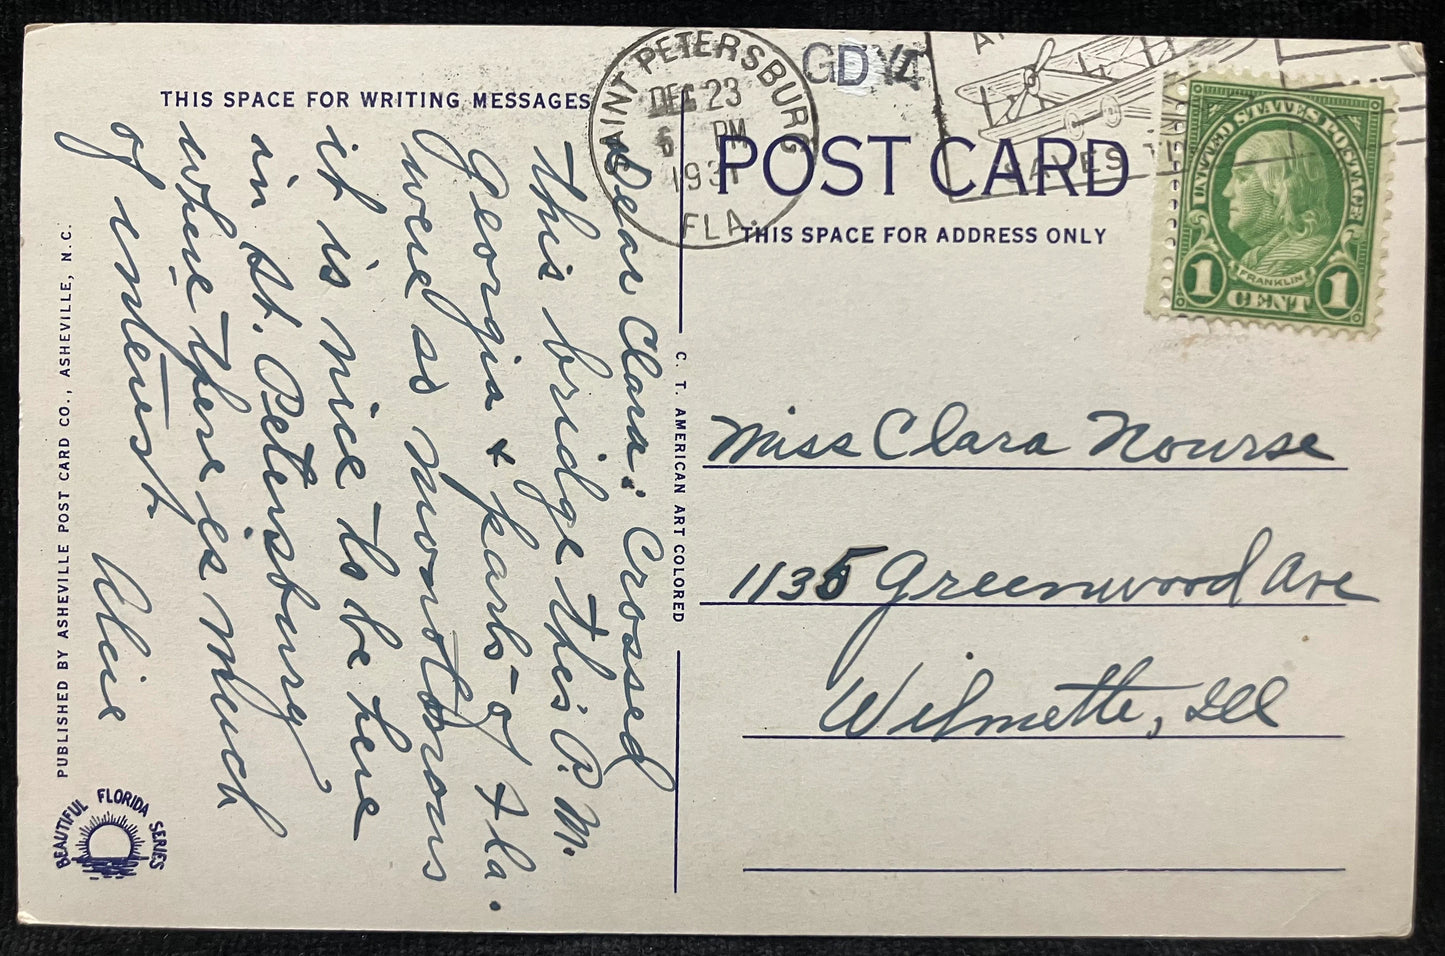 THIS SPACE FOR WRITING MESSAGES
SAINT PETERSBURG
DEC 23
6 PM
1931
FLA.
POST CARD
THIS SPACE FOR ADDRESS ONLY
UNITED STATES POSTAGE
FRANKLIN
1 CENT 1
Dear Clara: Crossed
this bridge this P. M.
Georgia & parts of Fla.
were so monotonous
it is nice to be here
in St. Petersburg
where there is much
of interest.
Alice
Miss Clara Nourse
1135 Greenwood Ave
Wilmette, Ill
C. T. AMERICAN ART COLORED
PUBLISHED BY ASHEVILLE POST CARD CO., ASHEVILLE, N. C.
BEAUTIFUL FLORIDA SERIES